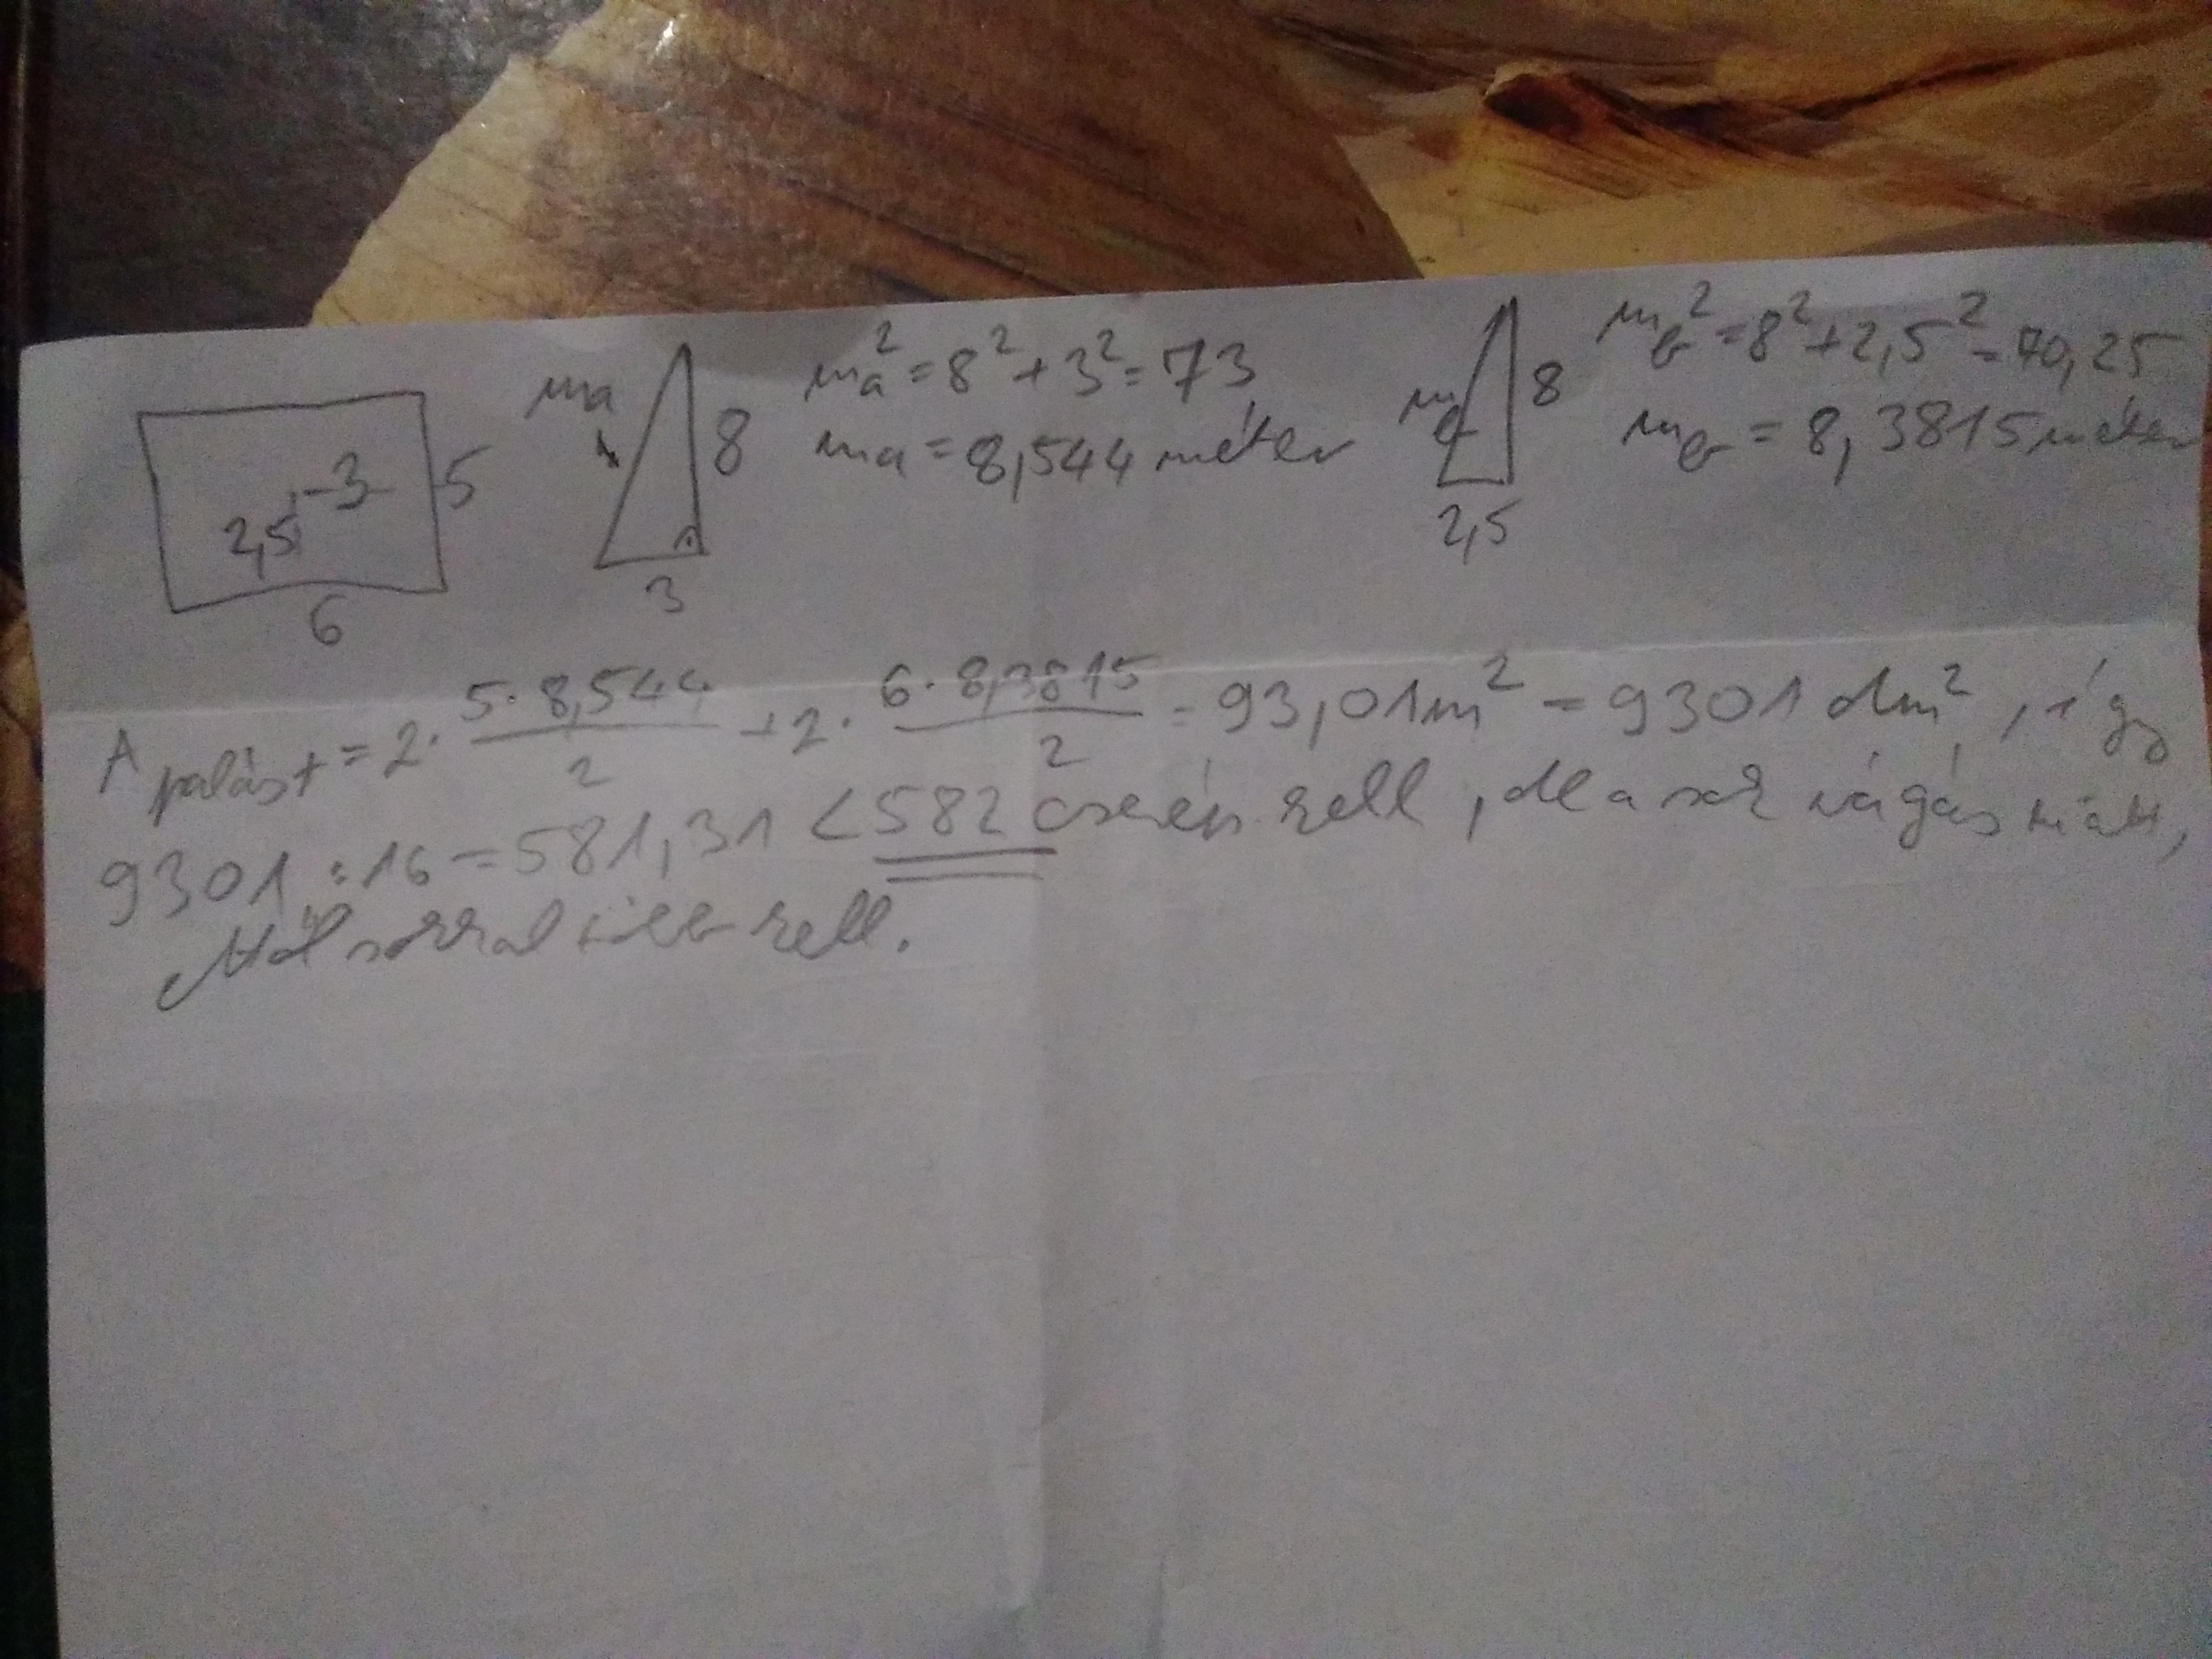 2,5 3 5
6
ma 8
3
ma² = 8² + 3² = 73
ma = 8,544 méter
mb 8
2,5
mb² = 8² + 2,5² = 70,25
mb = 8,3815 méter
A palást = 2· 5·8,544/2 + 2· 6·8,3815/2 = 93,01 m² = 9301 dm², így
9301 : 16 = 581,31 < 582 cserép kell, de a sok vágás miatt,
több kell.